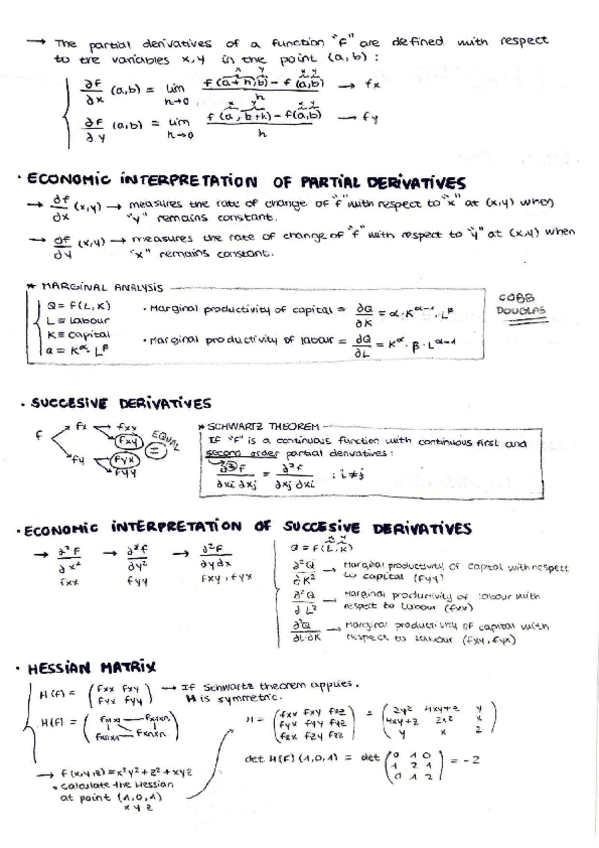 → The partial derivatives of a function "f" are defined with respect
to the variables x,y in the point (a,b):
∂f/∂x (a,b) = lim h→0 (f(a+h,b) - f(a,b))/h → fx
∂f/∂y (a,b) = lim h→0 (f(a,b+h) - f(a,b))/h → fy
· ECONOMIC INTERPRETATION OF PARTIAL DERIVATIVES
→ ∂f/∂x (x,y) → measures the rate of change of "f" with respect to "x" at (x,y) when
"y" remains constant.
→ ∂f/∂y (x,y) → measures the rate of change of "f" with respect to "y" at (x,y) when
"x" remains constant.
* MARGINAL ANALYSIS
Q = F(L,K)
L = Labour
K = capital
Q = K^α · L^β
· Marginal productivity of capital = ∂Q/∂K = α·K^(α-1)·L^β
· Marginal productivity of labour = ∂Q/∂L = K^α·β·L^(α-1)
COBB
DOUGLAS
· SUCCESIVE DERIVATIVES
f fx fxx
fxy
fy fyx
fyy
EQUAL
=
* SCHWARTZ THEOREM
If "F" is a continuous function with continuous first and
second order partial derivatives:
∂²f/∂xi ∂xj = ∂²f/∂xj ∂xi ; i≠j
· ECONOMIC INTERPRETATION OF SUCCESIVE DERIVATIVES
→ ∂²F/∂x² → ∂²f/∂y² → ∂²F/∂y∂x
fxx fyy fxy, fyx
Q = F(L,K)
∂²Q/∂K² → Marginal productivity of capital with respect
to capital (fyy)
∂²Q/∂L² → Marginal productivity of labour with
respect to labour (fxx)
∂²Q/∂L∂K → Marginal productivity of capital with
respect to labour (fxy, fyx)
· HESSIAN MATRIX
H(F) = (fxx fxy
fyx fyy) → If Schwartz theorem applies.
H is symmetric.
H(F) = (fx1x1 — fx1xn
fxnx1 fxnxn)
H = (fxx fxy fxz
fyx fyy fyz
fzx fzy fzz) = (2y² 4xy+z y
4xy+z 2x² x
y x 2)
→ f(x,y,z) = x²y² + z² + xyz
· calculate the Hessian
at point (1,0,1)
x y z
det H(F) (1,0,1) = det (0 1 0
1 2 1
0 1 2) = -2